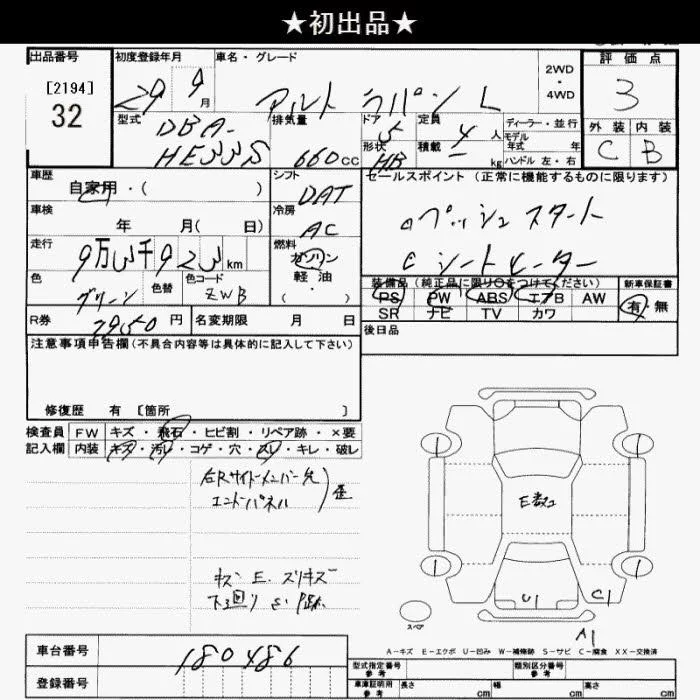 ★初出品★
出品番号
[2194]
32
初度登録年月
29 9月
車名・グレード
アルト ラパン L
2WD・4WD
評価点
3
外装 内装
C B
型式
DBA-
HE33S
排気量
660cc
ドア
5
形状
HB
定員
4人
積載
- kg
ディーラー・並行
モデル年式 年
ハンドル 左・右
車歴
自家用・( )
車検
年 月( 日)
走行
9万3千923km
色
グリーン
色替
色コード
ZWB
シフト
DAT
冷房
AC
燃料
ガソリン
軽油
・( )
セールスポイント (正常に機能するものに限ります)
プッシュスタート
シートヒーター
装備品(純正品に限り○をつけてください)
PS PW ABS エアB AW
SR ナビ TV カワ
新車保証書
有・無
R券
円
名変期限 月 日
後日品
注意事項申告欄(不具合内容等は具体的に記入して下さい)
修復歴 有 [箇所 ]
検査員
記入欄
FW キズ・飛石・ヒビ割・リペア跡・×要
内装 キズ・汚レ・コゲ・穴・スレ・キレ・破レ
右Rサイドメンバー先
エンドパネル
歪
キズ E. スリキズ
下回り
E数コ
1
1
1
1
U1
C1
A1
スペア
A-キズ E-エクボ U-凹み W-補修跡 S-サビ C-腐食 XX-交換済
車台番号
180486
登録番号
型式指定番号
参考
類別区分番号
参考
車庫証明用
参考
長さ cm 幅 cm 高さ cm